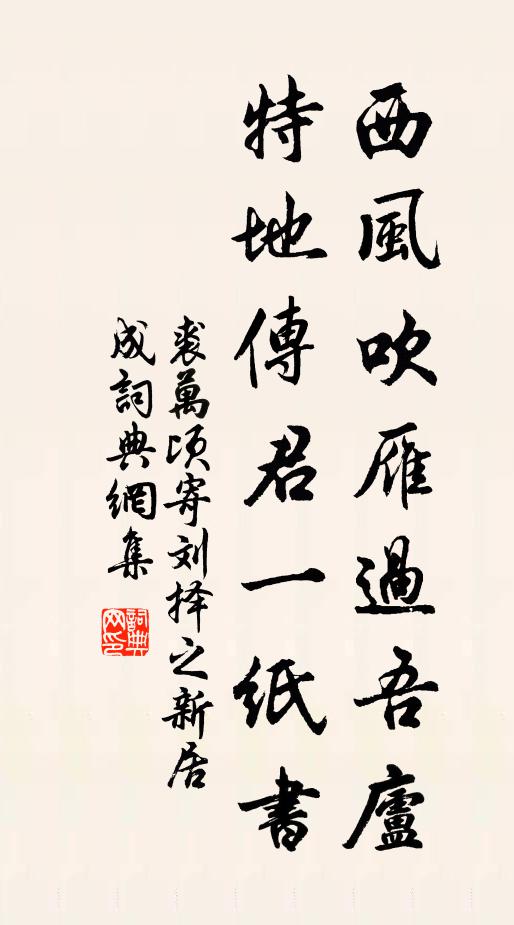 西風吹雁過吾廬
特地傳君一紙書
裘萬頃寄刘择之新居
成詞典網集
詞典网印